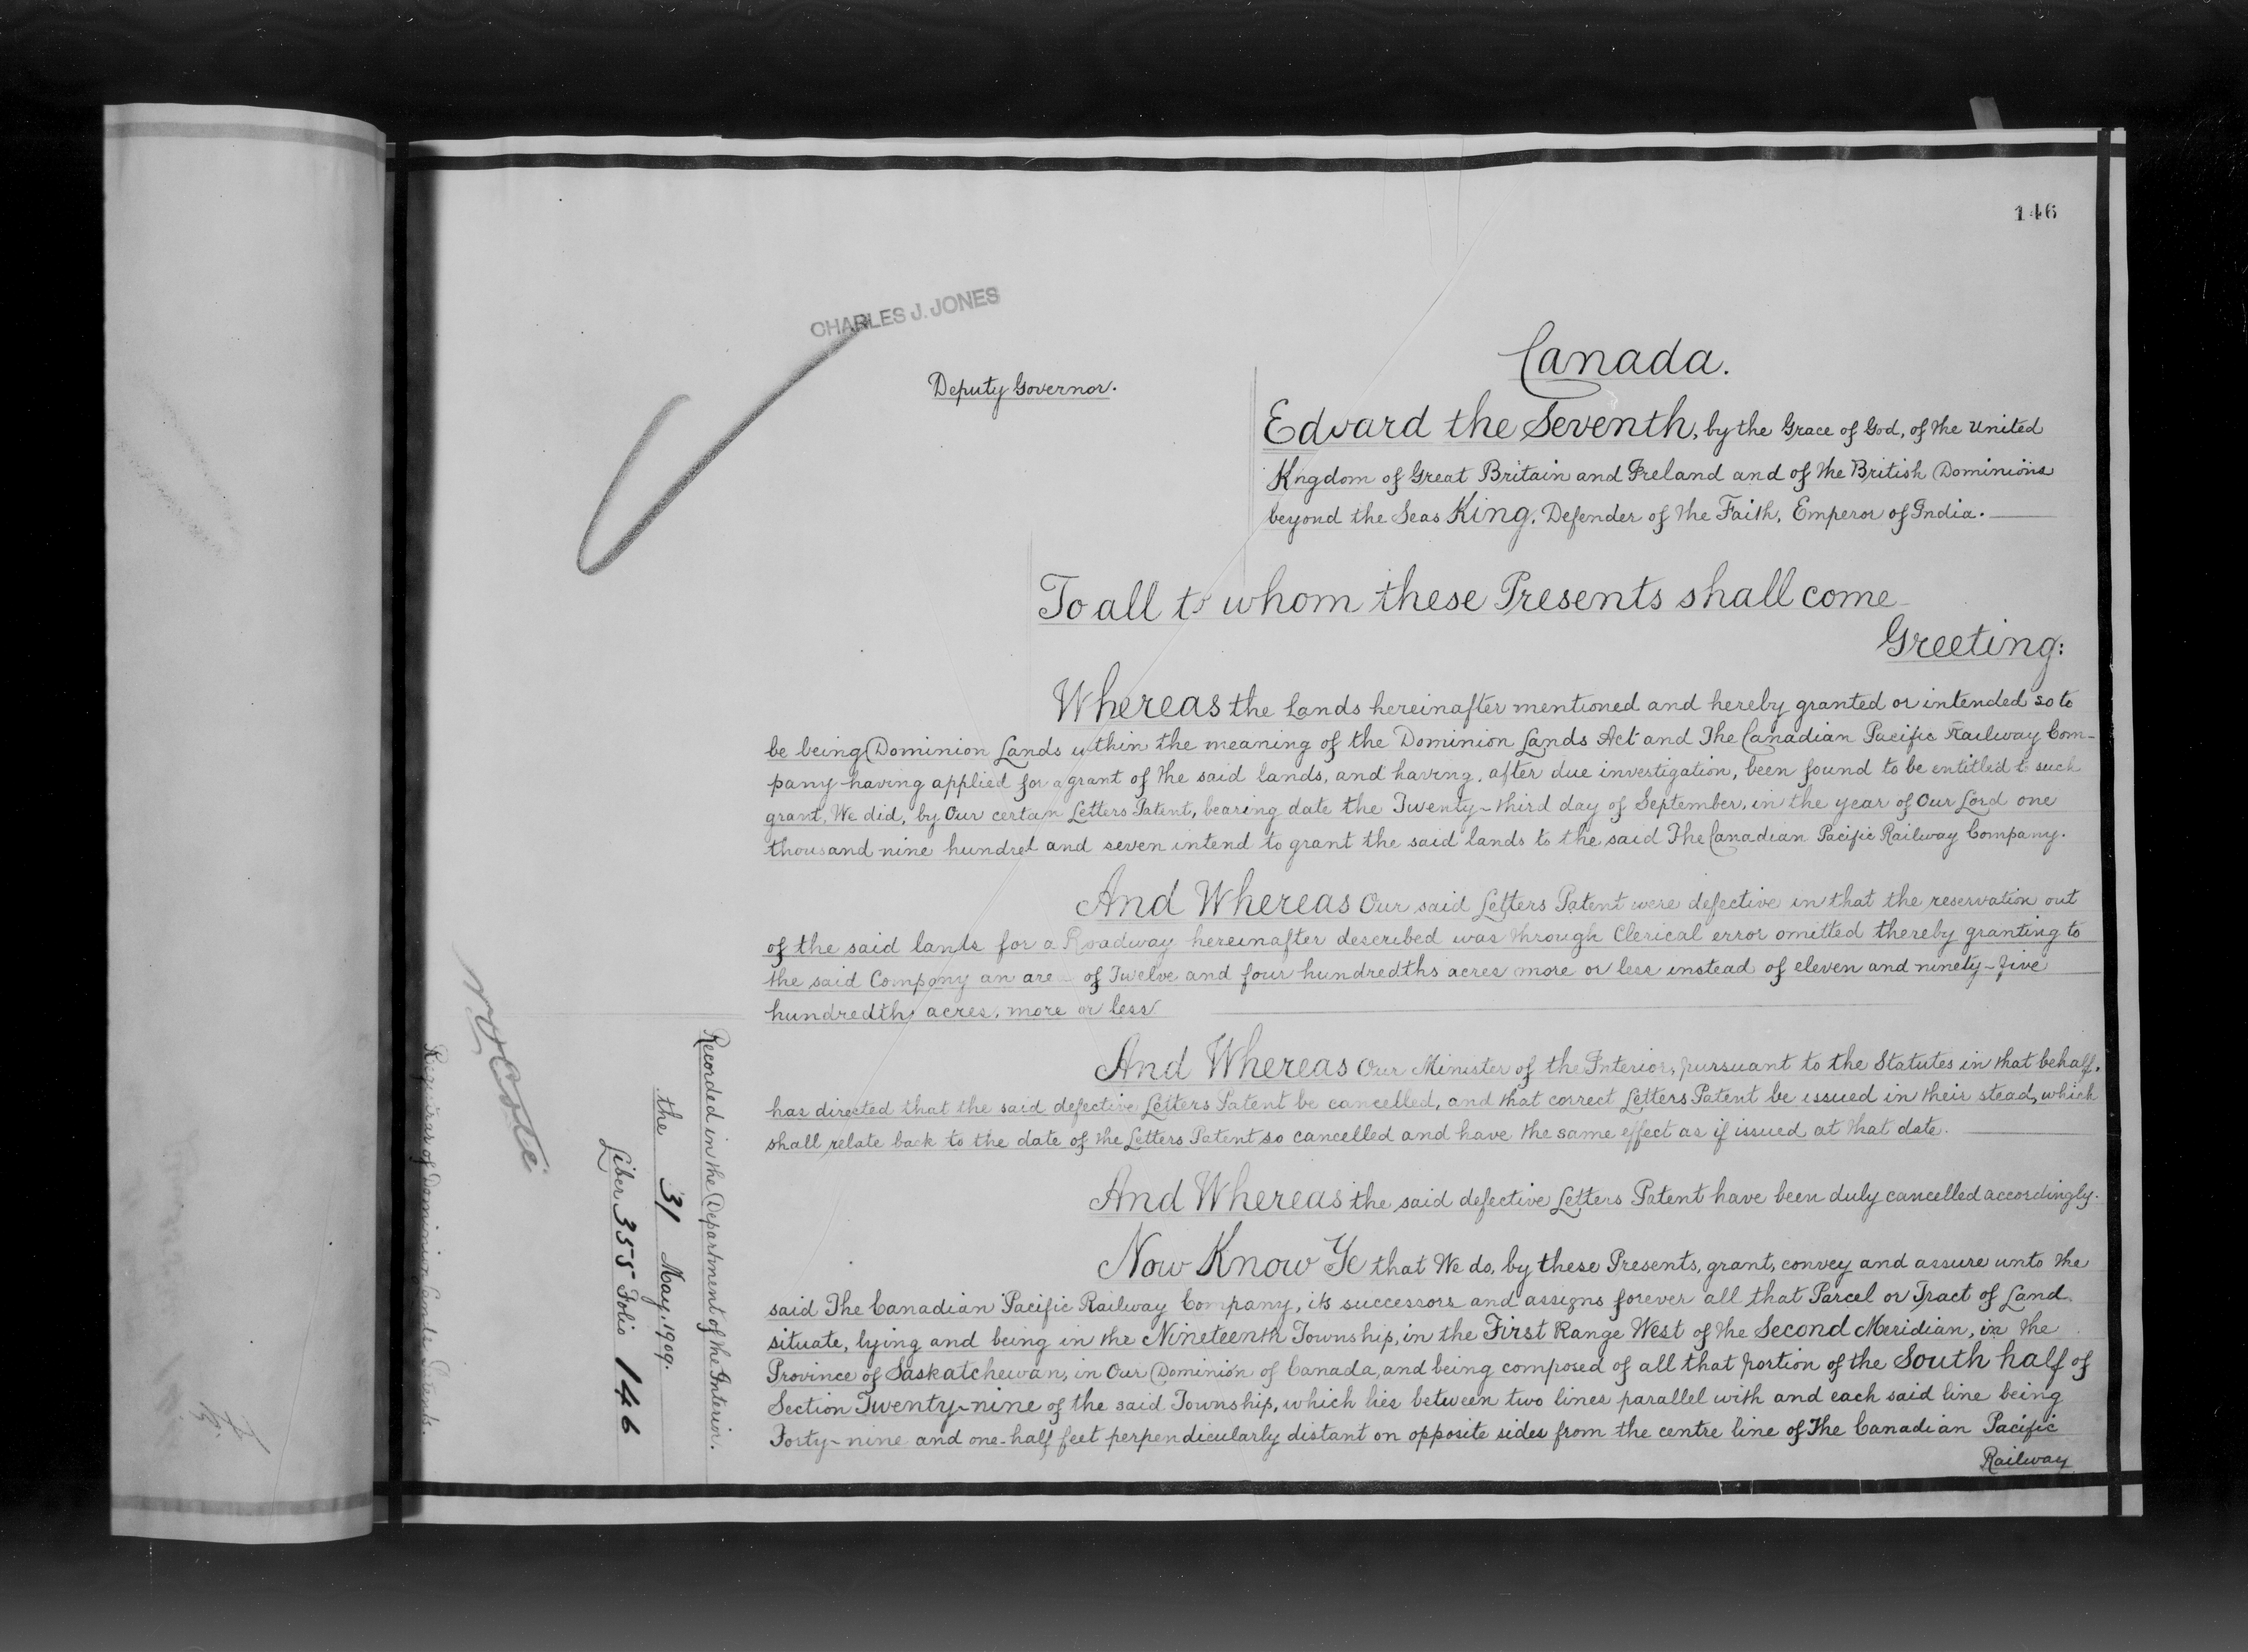 146
CHARLES J. JONES
Deputy Governor.
Canada.
Edward the Seventh, by the Grace of God, of the United
Kngdom of Great Britain and Ireland and of the British Dominions
beyond the Seas King, Defender of the Faith, Emperor of India.
To all to whom these Presents shall come
Greeting:
Whereas the Lands hereinafter mentioned and hereby granted or intended so to
be being Dominion Lands within the meaning of the Dominion Lands Act and The Canadian Pacific Railway Com-
pany having applied for a grant of the said lands, and having, after due investigation, been found to be entitled to such
grant, We did, by Our certain Letters Patent, bearing date the Twenty-third day of September, in the year of Our Lord one
thousand nine hundred and seven intend to grant the said lands to the said The Canadian Pacific Railway Company.
And Whereas Our said Letters Patent were defective in that the reservation out
of the said lands for a Roadway hereinafter described was through Clerical error omitted thereby granting to
the said Company an area of Twelve and four hundredths acres more or less instead of eleven and ninety-five
hundredths acres, more or less
And Whereas Our Minister of the Interior, pursuant to the Statutes in that behalf,
has directed that the said defective Letters Patent be cancelled, and that correct Letters Patent be issued in their stead, which
shall relate back to the date of the Letters Patent so cancelled and have the same effect as if issued at that date.
And Whereas the said defective Letters Patent have been duly cancelled accordingly.
Now Know Ye that We do, by these Presents, grant, convey and assure unto the
said The Canadian Pacific Railway Company, its successors and assigns forever all that Parcel or Tract of Land
situate, lying and being in the Nineteenth Township, in the First Range West of the Second Meridian, in the
Province of Saskatchewan, in Our Dominion of Canada, and being composed of all that portion of the South half of
Section Twenty-nine of the said Township, which lies between two lines parallel with and each said line being
Forty-nine and one-half feet perpendicularly distant on opposite sides from the centre line of The Canadian Pacific
Railway
Recorded in the Department of the Interior.
the 31 May, 1909.
Liber 355 Folio 146
Registrar of Dominion Lands Patents.